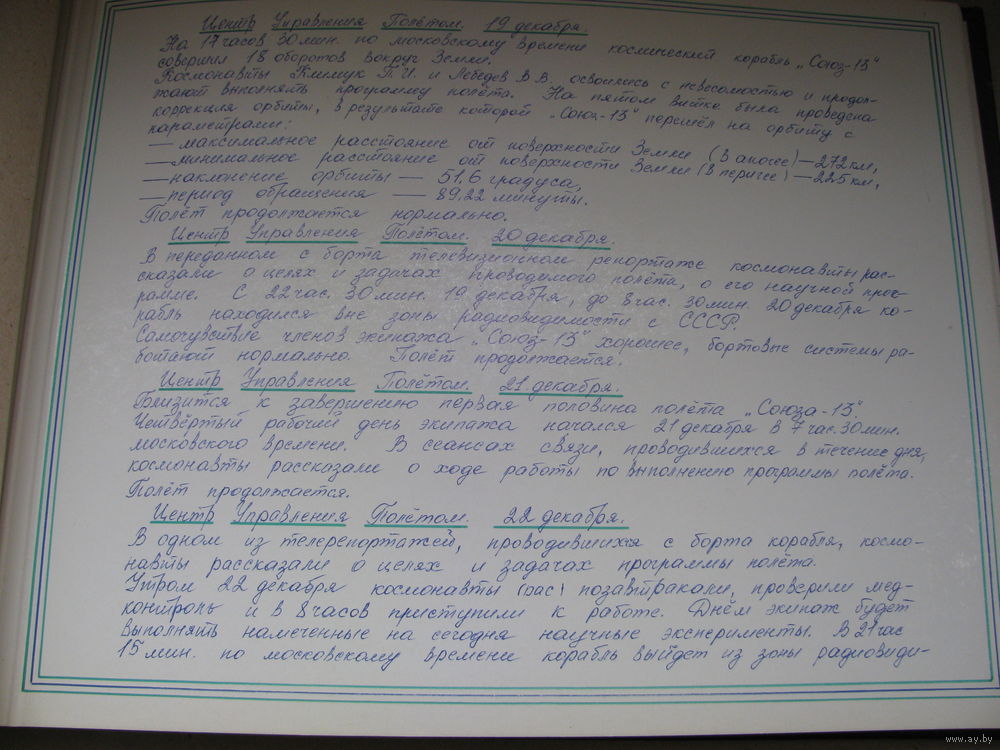 Центр Управления Полётом. 19 декабря.
На 17 часов 30 мин. по московскому времени космический корабль „Союз-13"
совершил 18 оборотов вокруг Земли.
Космонавты Климук П.И. и Лебедев В.В. освоились с невесомостью и продол-
жают выполнять программу полёта. На пятом витке была проведена
коррекция орбиты, в результате которой „Союз-13" перешёл на орбиту с
параметрами:
— максимальное расстояние от поверхности Земли (в апогее) — 272 км,
— минимальное расстояние от поверхности Земли (в перигее) — 225 км,
— наклонение орбиты — 51,6 градуса,
— период обращения — 89,22 минуты.
Полёт продолжается нормально.
Центр Управления Полётом. 20 декабря.
В переданном с борта телевизионном репортаже космонавты рас-
сказали о целях и задачах проводимого полёта, о его научной прог-
рамме. С 22 час. 30 мин. 19 декабря, до 8 час. 30 мин. 20 декабря ко-
рабль находился вне зоны радиовидимости с СССР.
Самочувствие членов экипажа „Союз-13" хорошее, бортовые системы ра-
ботают нормально. Полёт продолжается.
Центр Управления Полётом. 21 декабря.
Близится к завершению первая половина полёта „Союза-13".
Четвёртый рабочий день экипажа начался 21 декабря в 7 час. 30 мин.
московского времени. В сеансах связи, проводившихся в течение дня,
космонавты рассказали о ходе работы по выполнению программы полёта.
Полёт продолжается.
Центр Управления Полётом. 22 декабря.
В одном из телерепортажей, проводившихся с борта корабля, космо-
навты рассказали о целях и задачах программы полёта.
Утром 22 декабря космонавты (рас) позавтракали, проверили мед-
контроль и в 8 часов приступили к работе. Днём экипаж будет
выполнять намеченные на сегодня научные эксперименты. В 21 час
15 мин. по московскому времени корабль выйдет из зоны радиовиди-
www.ay.by